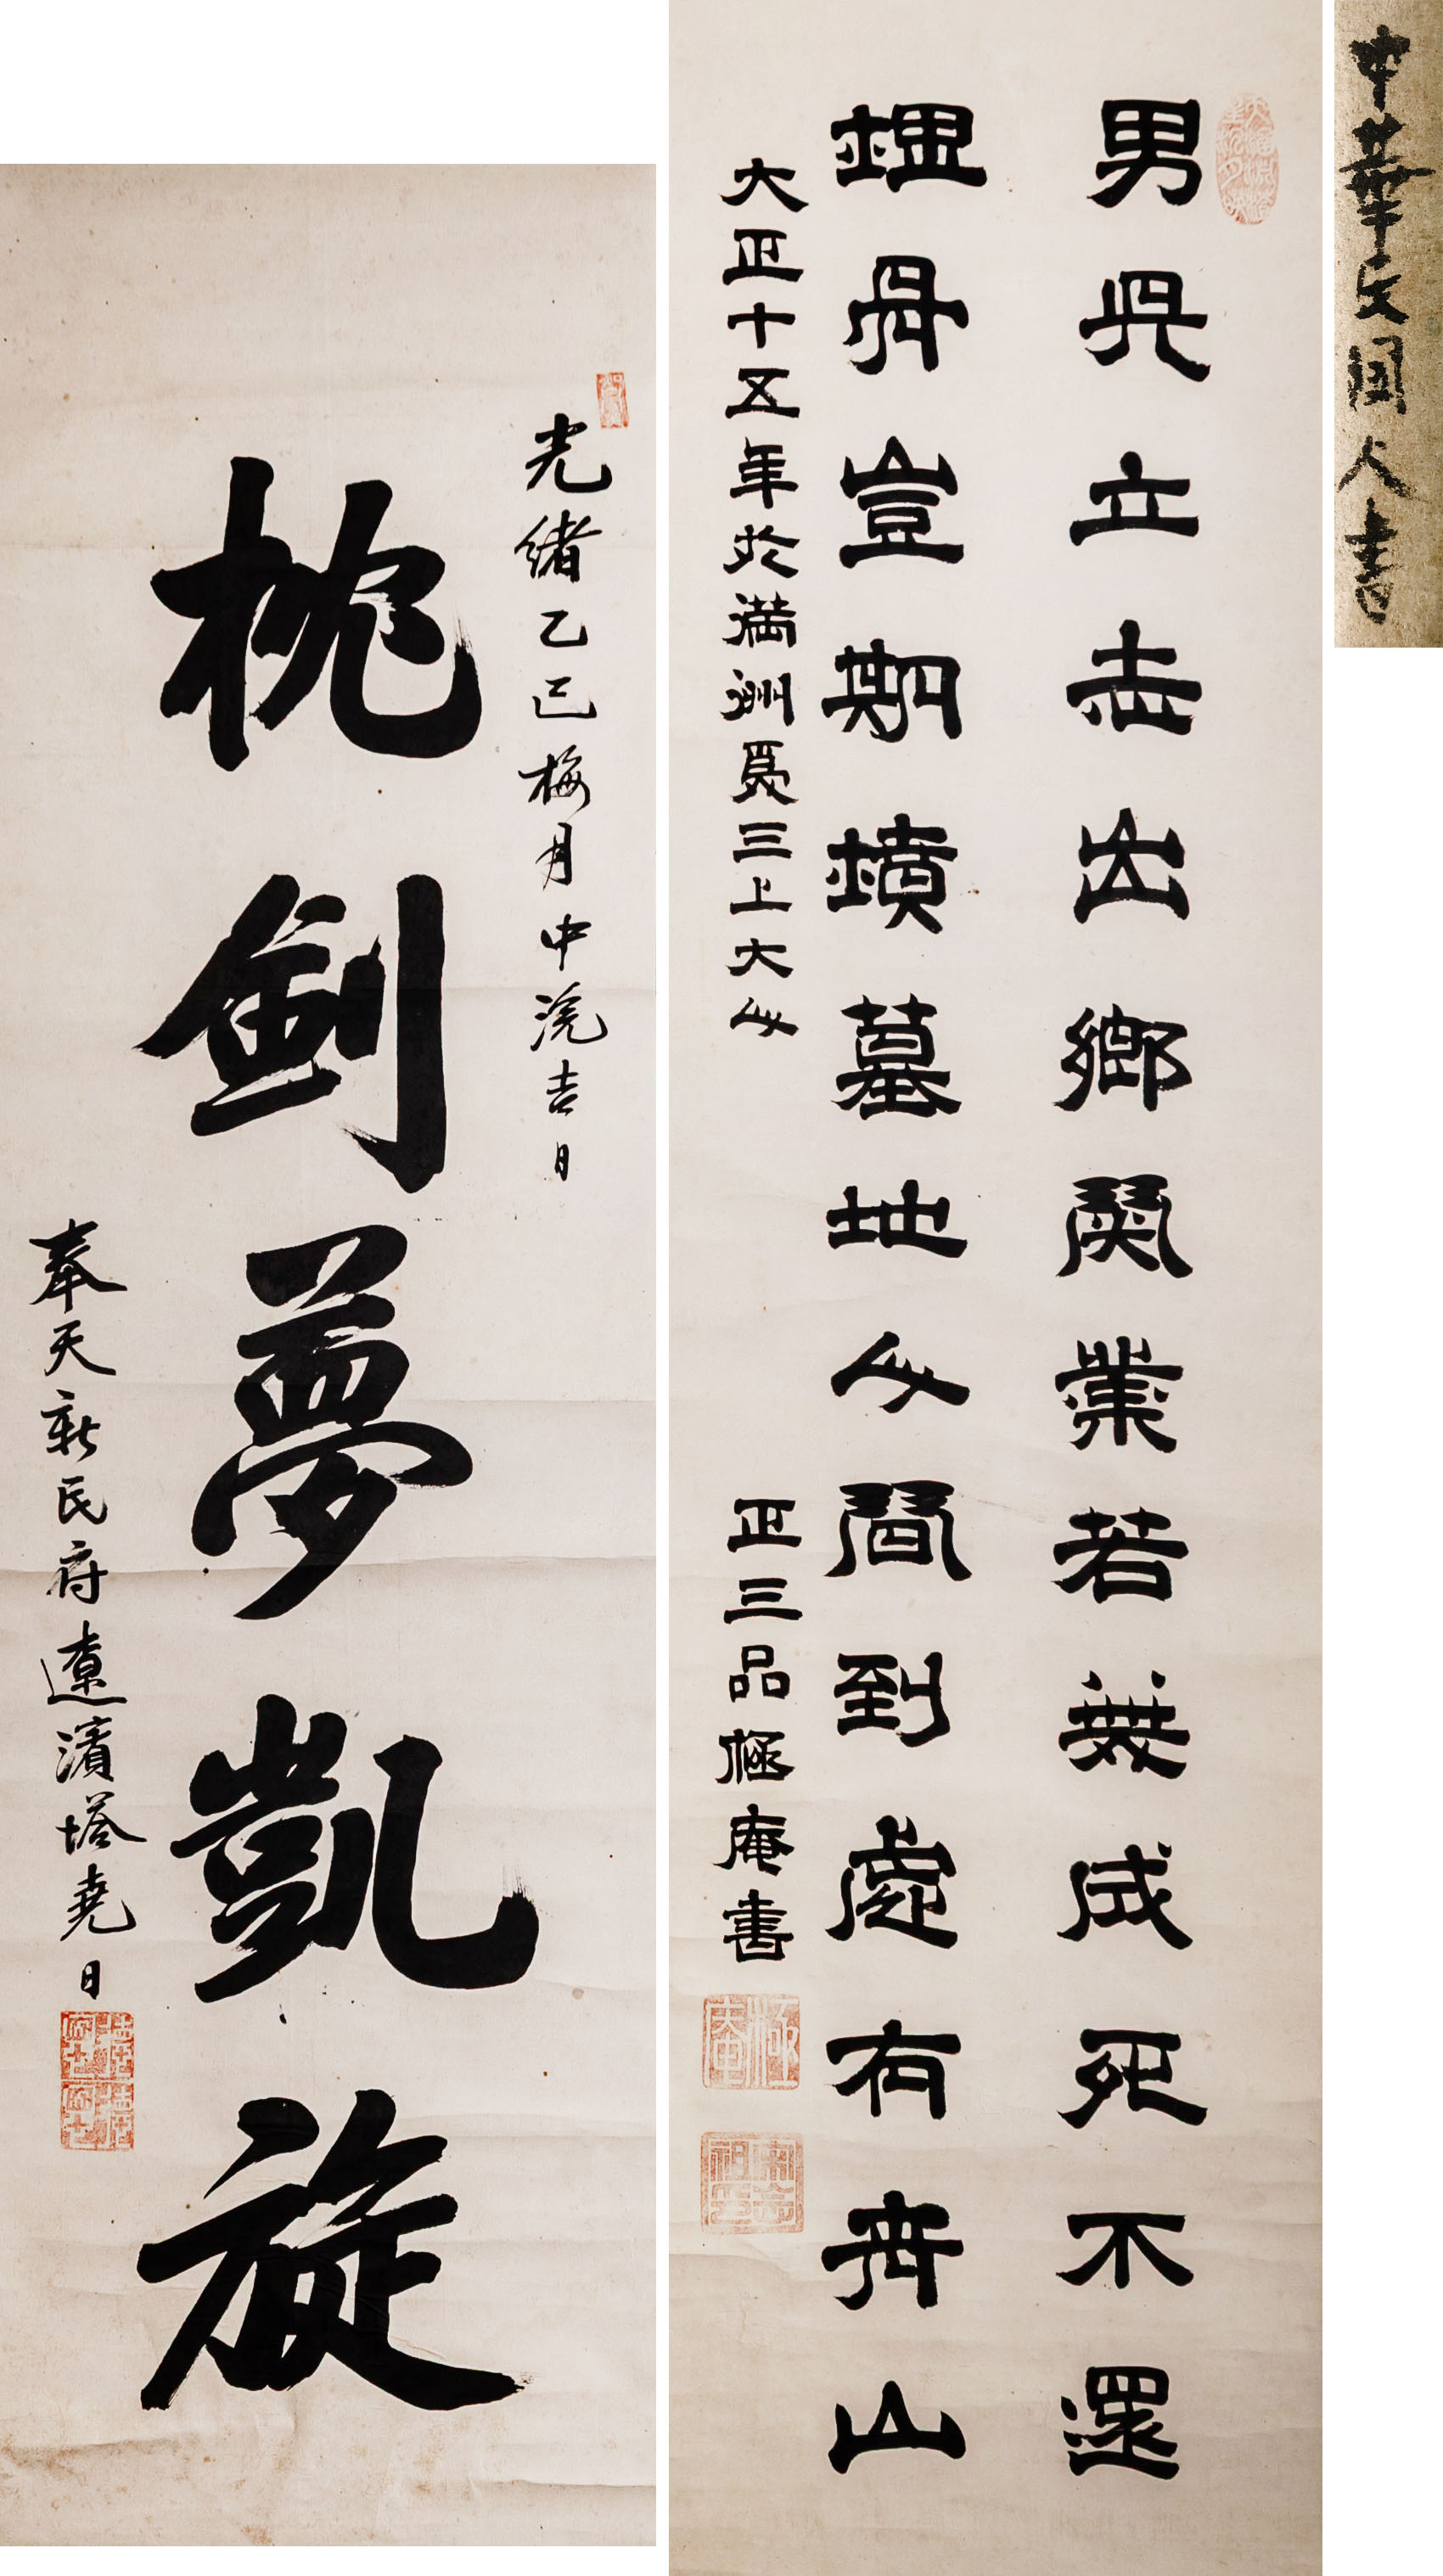 中華民国人書
男兒立志出鄉関業若無成死不還
埋骨豈期墳墓地人間到處有青山
大正十五年於満洲為三上大人
正三品極庵書
極庵
光緒乙巳梅月中浣吉日
枕劍夢凱旋
奉天新民府遼濱塔堯日